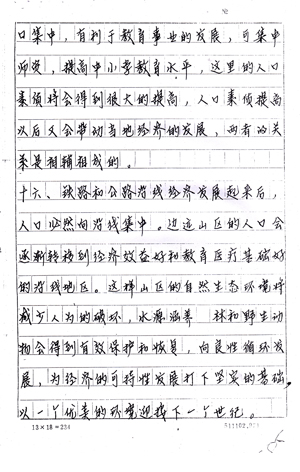 口集中，有利于教育事业的发展，可集中
师资，提高中小学教育水平，这里的人口
素质将会得到很大的提高，人口素质提高
以后又会带动当地经济的发展，两者的关
系是相辅相成的。
十六、铁路和公路沿线经济发展起来后，
人口必然向沿线集中。边远山区的人口会
逐渐转移到经济效益好和教育医疗基础好
的沿线地区。这样山区的自然生态环境将
减少人为的破坏，水源涵养 林和野生动
物会得到有效保护和恢复，向良性循环发
展，为经济的可持性发展打下坚实的基础，
以一个优美的环境迎接下一个世纪。
13×18=234